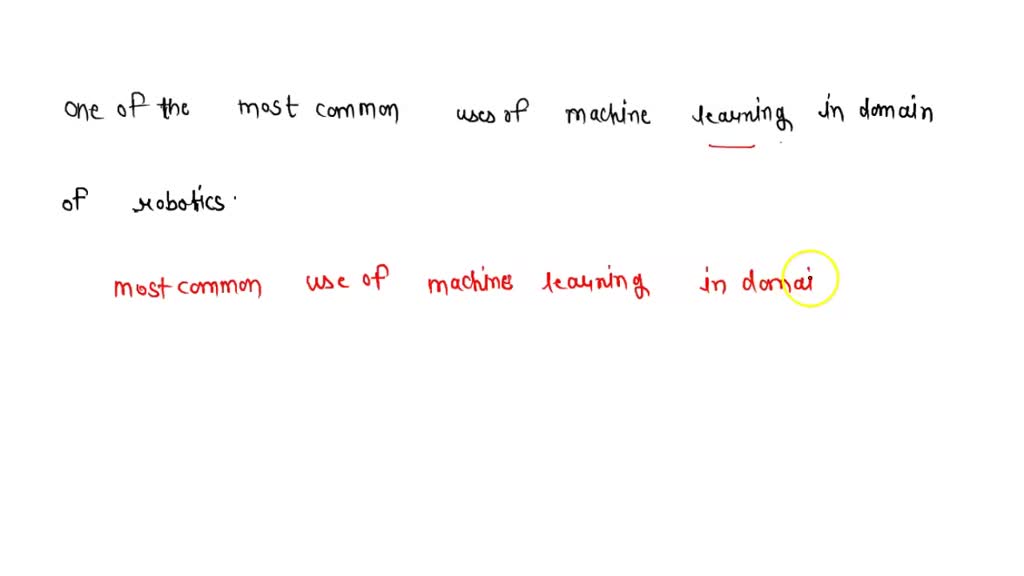 one of the most common uses of machine learning in domain
of robotics.
most common use of machine learning in domai